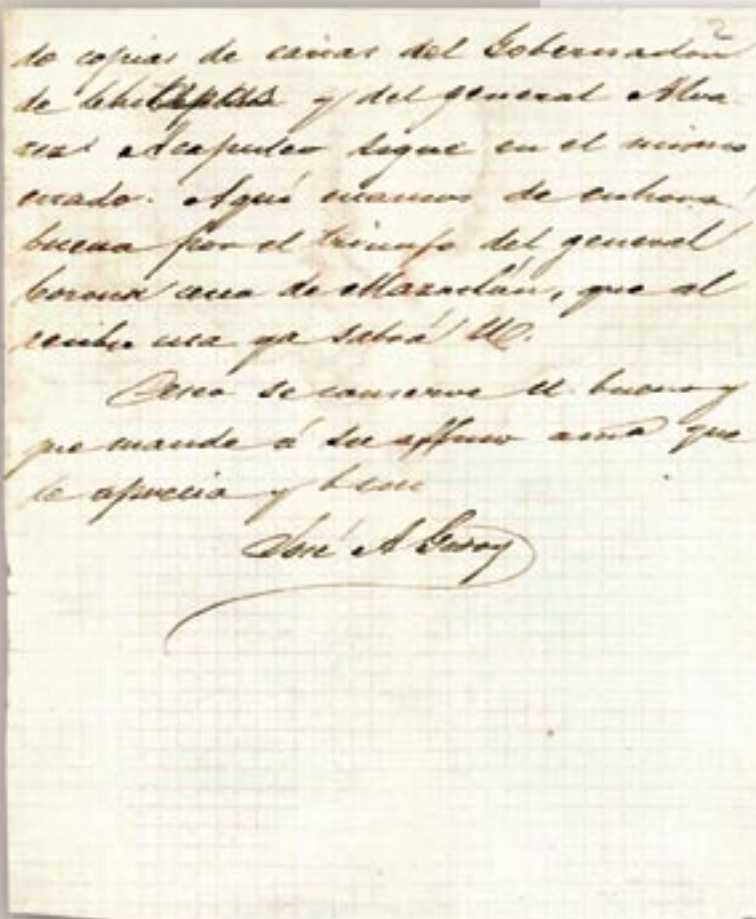 2
do copias de cartas del Gobernador
de Chiapas y del general Alva
rez. Acapulco sigue en el mismo
estado. Aquí estamos de enhora
buena por el triunfo del general
Corona cerca de Mazatlán, que al
recibir esta ya sabrá U.
Deseo se conserve U. bueno y
que mande á su affmo amo que
le aprecia y b s m
José A Godoy